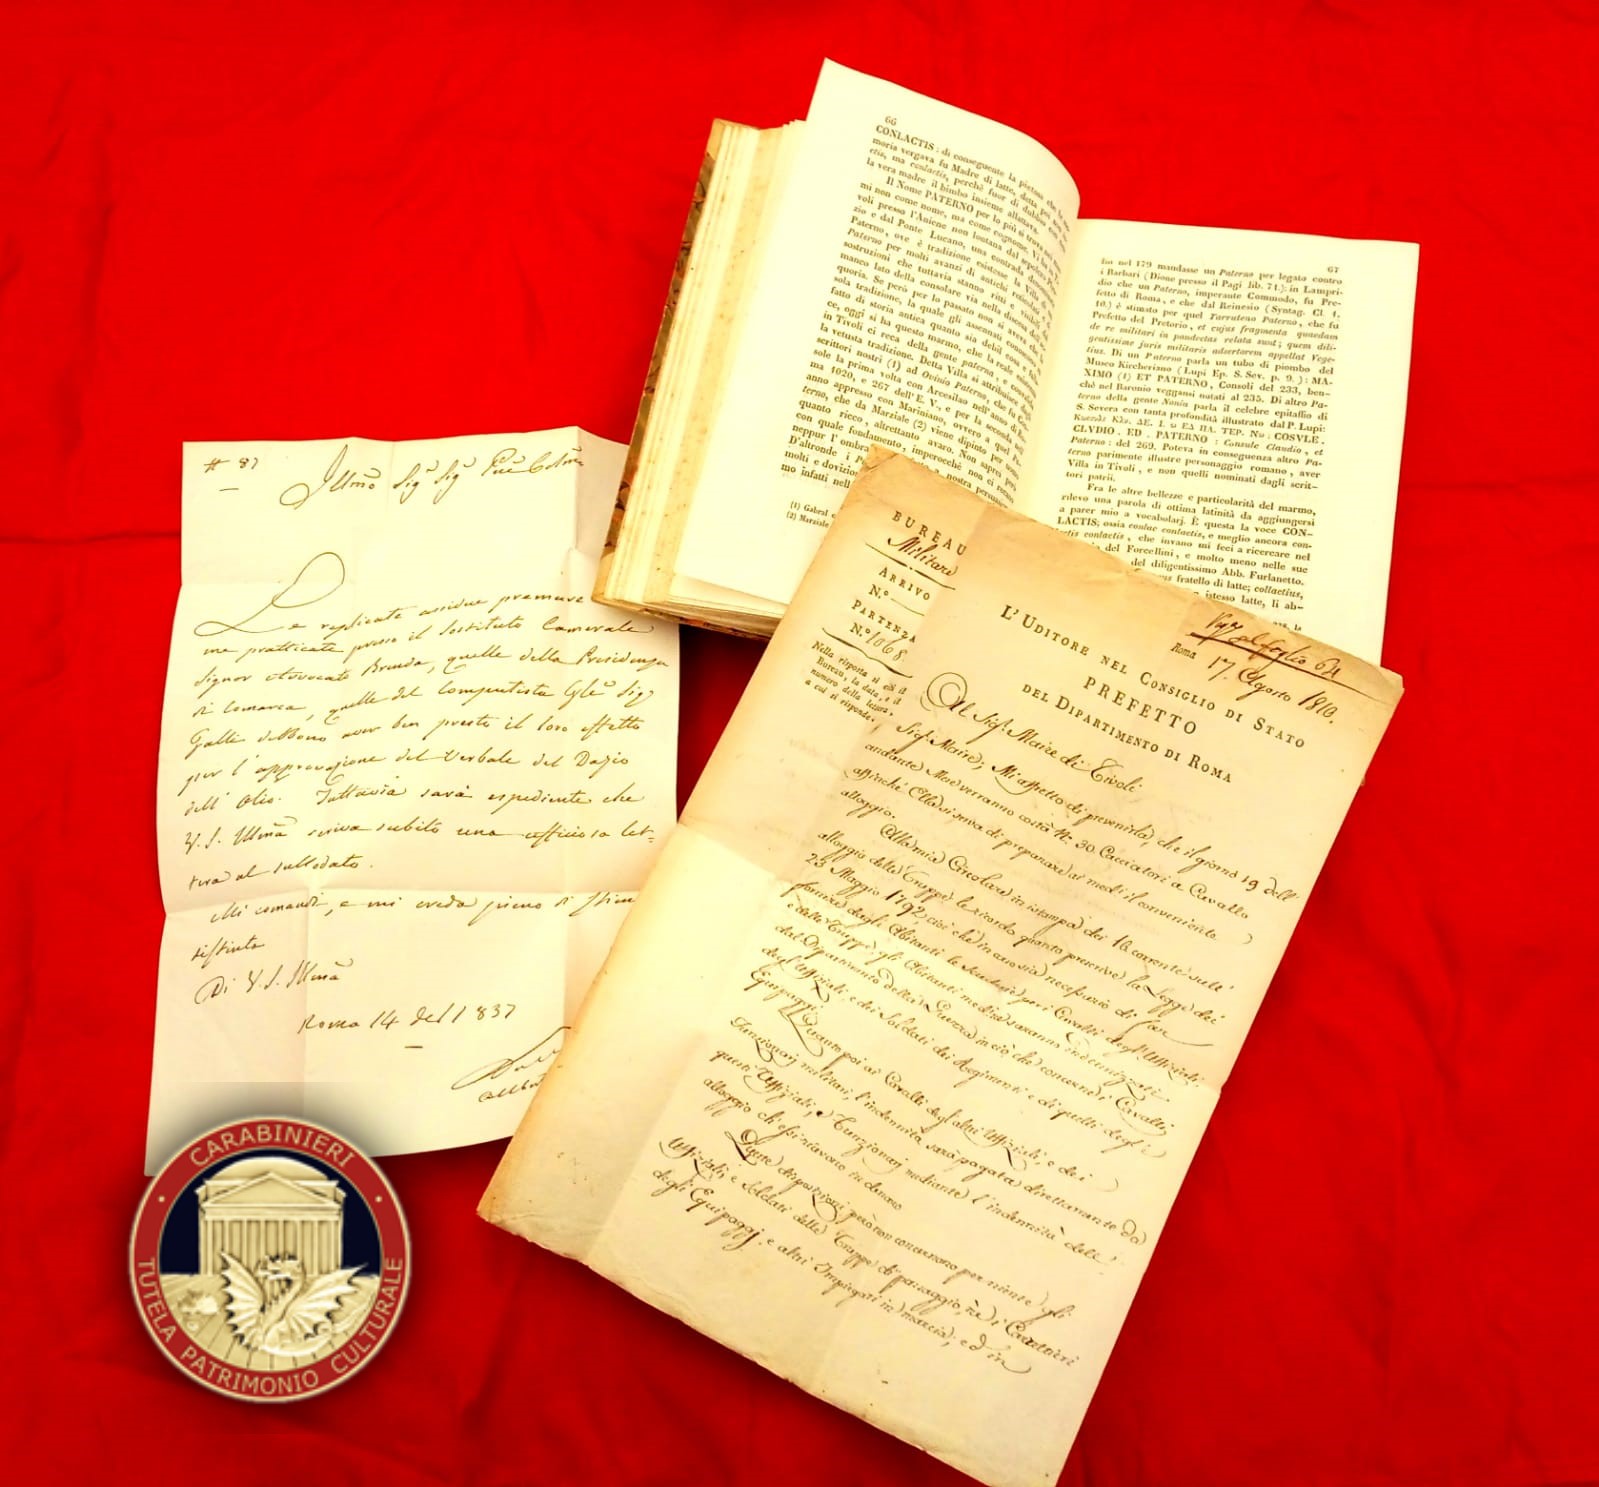 66
CONLACTIS: di conseguente la pietosa che la me-
moria vergava fu Madre di latte, detta poi non
ctis, ma conlactis, perchè fuor di dubbio con
la vera madre il bimbo insieme allattava.
Il Nome PATERNO per lo più si trova nei mar-
mi non come nome, ma come cognome. Vi ha
voli presso l'Aniene non lontana dal sepolcro
zio e dal Ponte Lucano, una contrada denominata
Paterno, ove è tradizione esistesse la Villa di
Paterno per molti avanzi di antichi reticolati e
sostruzioni che tuttavia stanno ritti e visibili a
manco lato della consolare via nella discesa della
quoria. Se però per lo passato non si aveva che la
sola tradizione, la quale gli assennati conoscono in
fatto di storia antica quanto sia debil cosa e falla-
ce, oggi si ha questo marmo, che la reale esistenza
in Tivoli ci reca della gente paterna, e convalida
la vetusta tradizione. Detta Villa si attribuisce dagli
scrittori nostri (1) ad Ovinio Paterno, che fu Con-
sole la prima volta con Arcesilao nell'anno di Ro-
ma 1020, e 267 dell'E. V., e per la seconda
anno appresso con Mariniano, ovvero a quel Pa-
terno, che da Marziale (2) viene dipinto per
quanto ricco, altrettanto avaro. Non saprei però
con quale fondamento, imperocchè non ci recano
neppur l'ombra
D'altronde i P nostra persuasione
molti e dovizio
mo infatti nell
(1) Gabral
(2) Marziale
67
fin nel 179 mandasse un Paterno per legato contro
i Barbari (Dione presso il Pagi lib. 71.): in Lampri-
dio che un Paterno, imperante Commodo, fu Pre-
fetto di Roma, e che dal Reinesio (Syntag. Cl. 1.
10.) è stimato per quel Tarruteno Paterno, che fu
Prefetto del Pretorio, et cujus fragmenta quaedam
de re militari in pandectas relata sunt; quem dili-
gentissime juris militaris adsertorem appellat Vege-
tius. Di un Paterno parla un tubo di piombo del
Museo Kircheriano (Lupi Ep. S. Sev. p. 9.): MA-
XIMO (1) ET PATERNO, Consoli del 233, ben-
chè nel Baronio veggansi notati al 235. Di altro Pa-
terno della gente Nonia parla il celebre epitaffio di
S. Severa con tanta profondità illustrato dal P. Lupi:
COSVLE.
CLVDIO. ED. PATERNO: Consule Claudio, et
Paterno: del 269. Poteva in conseguenza altro Pa-
terno parimente illustre personaggio romano, aver
Villa in Tivoli, e non quelli nominati dagli scrit-
tori patrii.
Fra le altre bellezze e particolarità del marmo,
rilevo una parola di ottima latinità da aggiungersi
a parer mio a vocabolarj. È questa la voce CON-
LACTIS; ossia conlac conlactis, e meglio ancora con-
lactis conlactis, che invano mi feci a ricercare nel
del Forcellini, e molto meno nelle sue
del diligentissimo Abb. Furlanetto.
fratello di latte; collactius,
istesso latte, li ab-
# 87
Illmo Sig Sig
Le replicate assidue premure
me pratticate presso il Sostituto Camerale
Signor Avvocato Brenda, quelle della Presidenza
di Comarca, quelle del Computista Gle Sig
Galli debbono aver ben presto il loro effetto
per l'approvazione del Verbale del Dazio
dell'Olio. Tuttavia sarà espediente che
V. S. Illma scriva subito una officiosa let-
tera al sullodato.
Mi comandi, e mi creda pieno di stima
distinta
Di V. S. Illma
Roma 14 1837
BUREAU
Militare
ARRIVO
N.º
PARTENZA
N.º 1068.
Nella risposta si citi il
Bureau, la data, e il
numero della lettera,
a cui si risponde.
al foglio
Roma 17. Agosto 1810.
L'UDITORE NEL CONSIGLIO DI STATO
PREFETTO
DEL DIPARTIMENTO DI ROMA
Al Sigr. Maire di Tivoli
Sigr. Maire; Mi affretto di prevenirla, che il giorno 19 dell'
andante Mese verranno costà N. 30 Cacciatori a Cavallo
affinchè Ella si serva di preparare ai medi. il conveniente
alloggio.
Alla mia Circolare in istampa dei 16 corrente sull'
alloggio delle Truppe, le ricordo quanto prescrive la Legge dei
23 Maggio 1792, cioè che in caso sia necessario di far
fornire dagli Abitanti le Scuderie per i Cavalli degl'Uffiziali,
e delle Truppe, gli Abitanti medi. saranno indennizzati
dal Dipartimento della Guerra in ciò che concerne i Cavalli
degl'Uffiziali, e dei Soldati dei Reggimenti e di quelli degl'i
Equipaggi.
Quanto poi ai Cavalli degl'altri Uffiziali, e dei
Funzionarj militari, l'indennità sarà pagata direttamente da
questi Uffiziali, e Funzionarj mediante l'indennità dell'
alloggio ch'essi ricevono in denaro
disposizioni però non concernono per niente gli
Uffiziali, e Soldati delle Truppe di passaggio, nè i Carrettieri
degli Equipaggj, e altri Impiegati in marcia; ed in
CARABINIERI
TUTELA PATRIMONIO CULTURALE